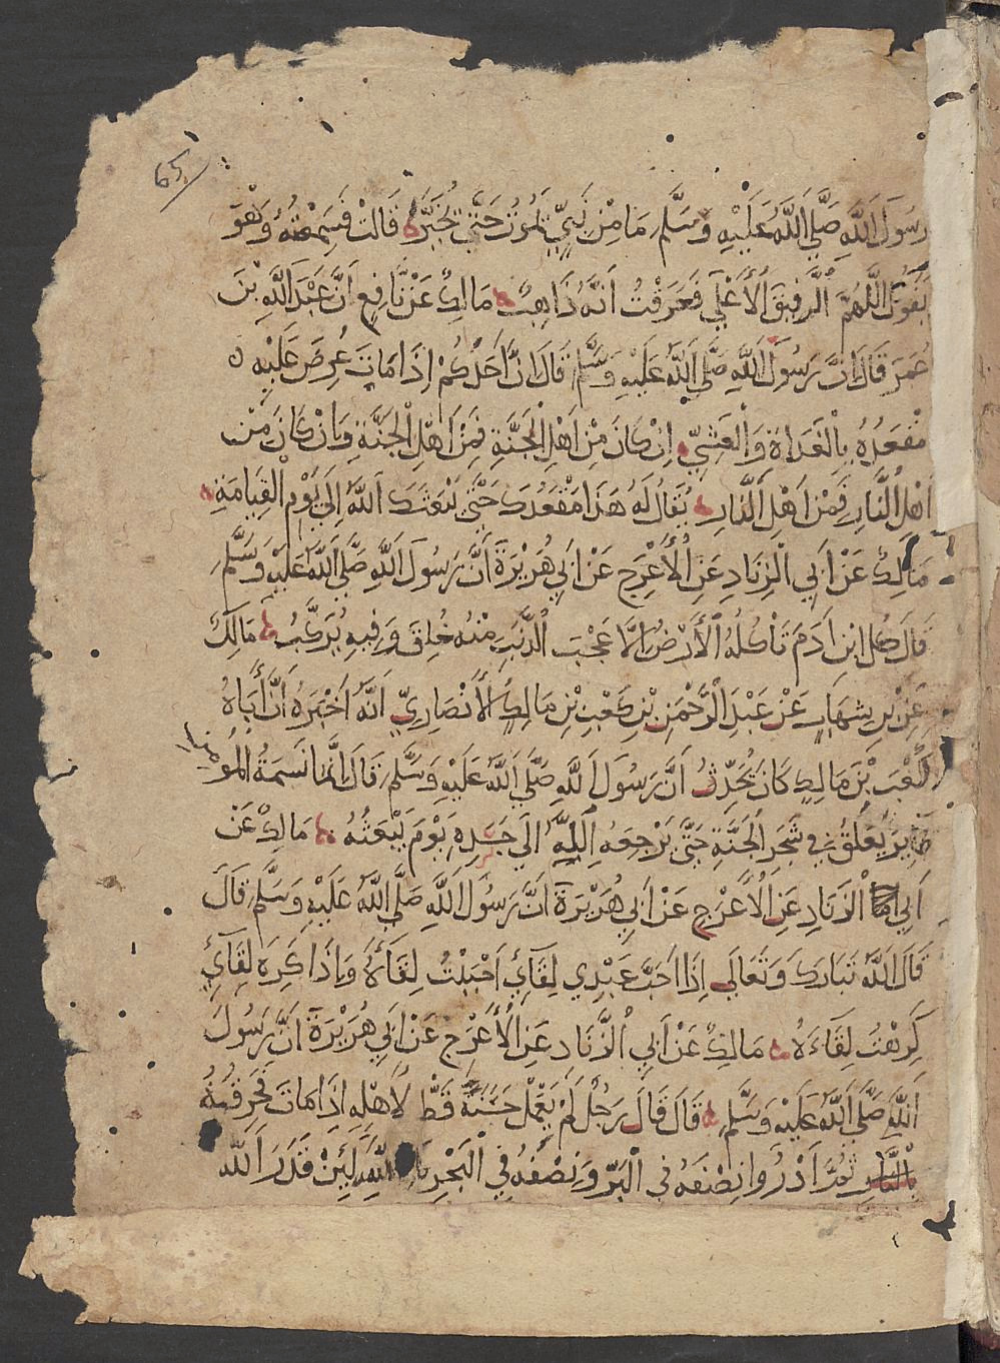 65
رَسُولَ اَللَّهِ صَلَّي اَللَّهُ عَلَيْهِ وَسَلَّمِ مَا مِنْ نَبِيٍّ يَمُوتُ حَتَّي يُخَيَّرَ قَالَتْ فَسَمِعْتُهُ وَهُوَ
يَقُولُ اللَّهُمَّ اَلرَّفِيقَ اَلْأَعْلَي فَعَرَفْتُ اَنَّهُ ذَاهِبٌ مَالِكٌ عَنْ نَافِعٍ اَنَّ عَبْدَ اَللَّهِ بْنَ
عُمَرَ قَالَ اِنَّ رَسُولَ اَللَّهِ صَلَّي اَللَّهُ عَلَيْهِ وَسَلَّمِ قَالَ اِنَّ اَحَدَكُمْ اِذَا مَاتَ عُرِضَ عَلَيْهِ
مَقْعَدُهُ بِالْغَدَاةِ وَالْعَشِيِّ اِنْ كَانَ مِنْ اَهْلِ اَلْجَنَّةِ فَمِنْ اَهْلِ اَلْجَنَّةِ وَاِنْ كَانَ مِنْ
اَهْلِ اَلنَّارِ فَمِنْ اَهْلِ اَلنَّارِ يُقَالُ لَهُ هَذَا مَقْعَدُكَ حَتَّي يَبْعَثَكَ اَللَّهُ اِلَي يَوْمِ اَلْقِيَامَةِ
مَالِكٌ عَنْ اَبِي اَلزِّنَادِ عَنِ اَلْأَعْرَجِ عَنْ اَبِي هُرَيْرَةَ اَنَّ رَسُولَ اَللَّهِ صَلَّي اَللَّهُ عَلَيْهِ وَسَلَّمِ
قَالَ كُلُّ ابْنِ اَدَمَ تَأْكُلُهُ اَلْأَرْضُ اِلَّا عَجْبَ اَلذَّنَبِ مِنْهُ خُلِقَ وَفِيهِ يُرَكَّبُ مَالِكٌ
عَنْ بْنِ شِهَابٍ عَنْ عَبْدِ اَلرَّحْمَنِ بْنِ كَعْبِ بْنِ مَالِكٍ اَلْأَنْصَارِيِّ اَنَّهُ اَخْبَرَهُ اَنَّ أَبَاهُ
كَعْبَ بْنَ مَالِكٍ كَانَ يُحَدِّثُ اَنَّ رَسُولَ اَللَّهِ صَلَّي اَللَّهُ عَلَيْهِ وَسَلَّمِ قَالَ اِنَّمَا نَسَمَةُ الْمُومِنِ
طَايِرٌ يَعْلَقُ فِي شَجَرِ اَلْجَنَّةِ حَتَّي يَرْجِعَهُ اَللَّهُ اِلَي جَسَدِهِ يَوْمَ يَبْعَثُهُ مَالِكٌ عَنْ
اَبِي اَلزِّنَادِ عَنِ اَلْأَعْرَجِ عَنْ اَبِي هُرَيْرَةَ اَنَّ رَسُولَ اَللَّهِ صَلَّي اَللَّهُ عَلَيْهِ وَسَلَّمِ قَالَ
قَالَ اَللَّهُ تَبَارَكَ وَتَعَالَي اِذَا اَحَبَّ عَبْدِي لِقَآئِ اَحْبَبْتُ لِقَآءَهُ وَاِذَا كَرِهَ لِقَآئِ
كَرِهْتُ لِقَاءَهُ مَالِكٌ عَنْ اَبِي اَلزِّنَادِ عَنِ اَلْأَعْرَجِ عَنْ اَبِي هُرَيْرَةَ اَنَّ رَسُولَ
اَللَّهِ صَلَّي اَللَّهُ عَلَيْهِ وَسَلَّمِ قَالَ قَالَ رَجُلٌ لَمْ يَعْمَلْ حَسَنَةً قَطُّ لِأَهْلِهِ اِذَا مَاتَ فَحَرِّقُوهُ
بِالنَّارِ ثُمَّ اَذْرُوا نِصْفَهُ فِي اَلْبَرِّ وَنِصْفَهُ فِي اَلْبَحْرِ اَللَّهِ لَئِنْ قَدَرَ اَللَّه